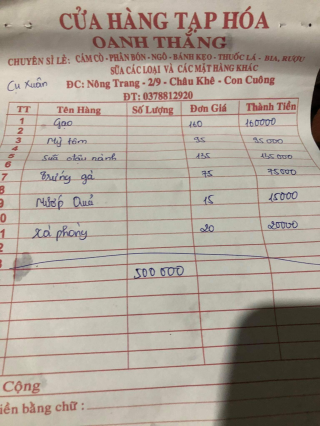 CỬA HÀNG TẠP HÓA
OANH THẮNG
CHUYÊN SỈ LẺ: CÁM CÒ - PHÂN BÓN - NGÔ - BÁNH KẸO - THUỐC LÁ - BIA, RƯỢU
SỮA CÁC LOẠI VÀ CÁC MẶT HÀNG KHÁC
Cụ Xuân
ĐC: Nông Trang - 2/9 - Châu Khê - Con Cuông
ĐT: 0378812920
TT Tên Hàng Số Lượng Đơn Giá Thành Tiền
1 Gạo 160 160000
2
3 Mỳ tôm 95 95000
4
5 Sữa đậu nành 135 135000
6
7 Trứng gà 75 75000
8
9 Mướp Quả 15 15000
0
1 Xà phòng 20 20000
2
3
500 000
Cộng
iền bằng chữ :